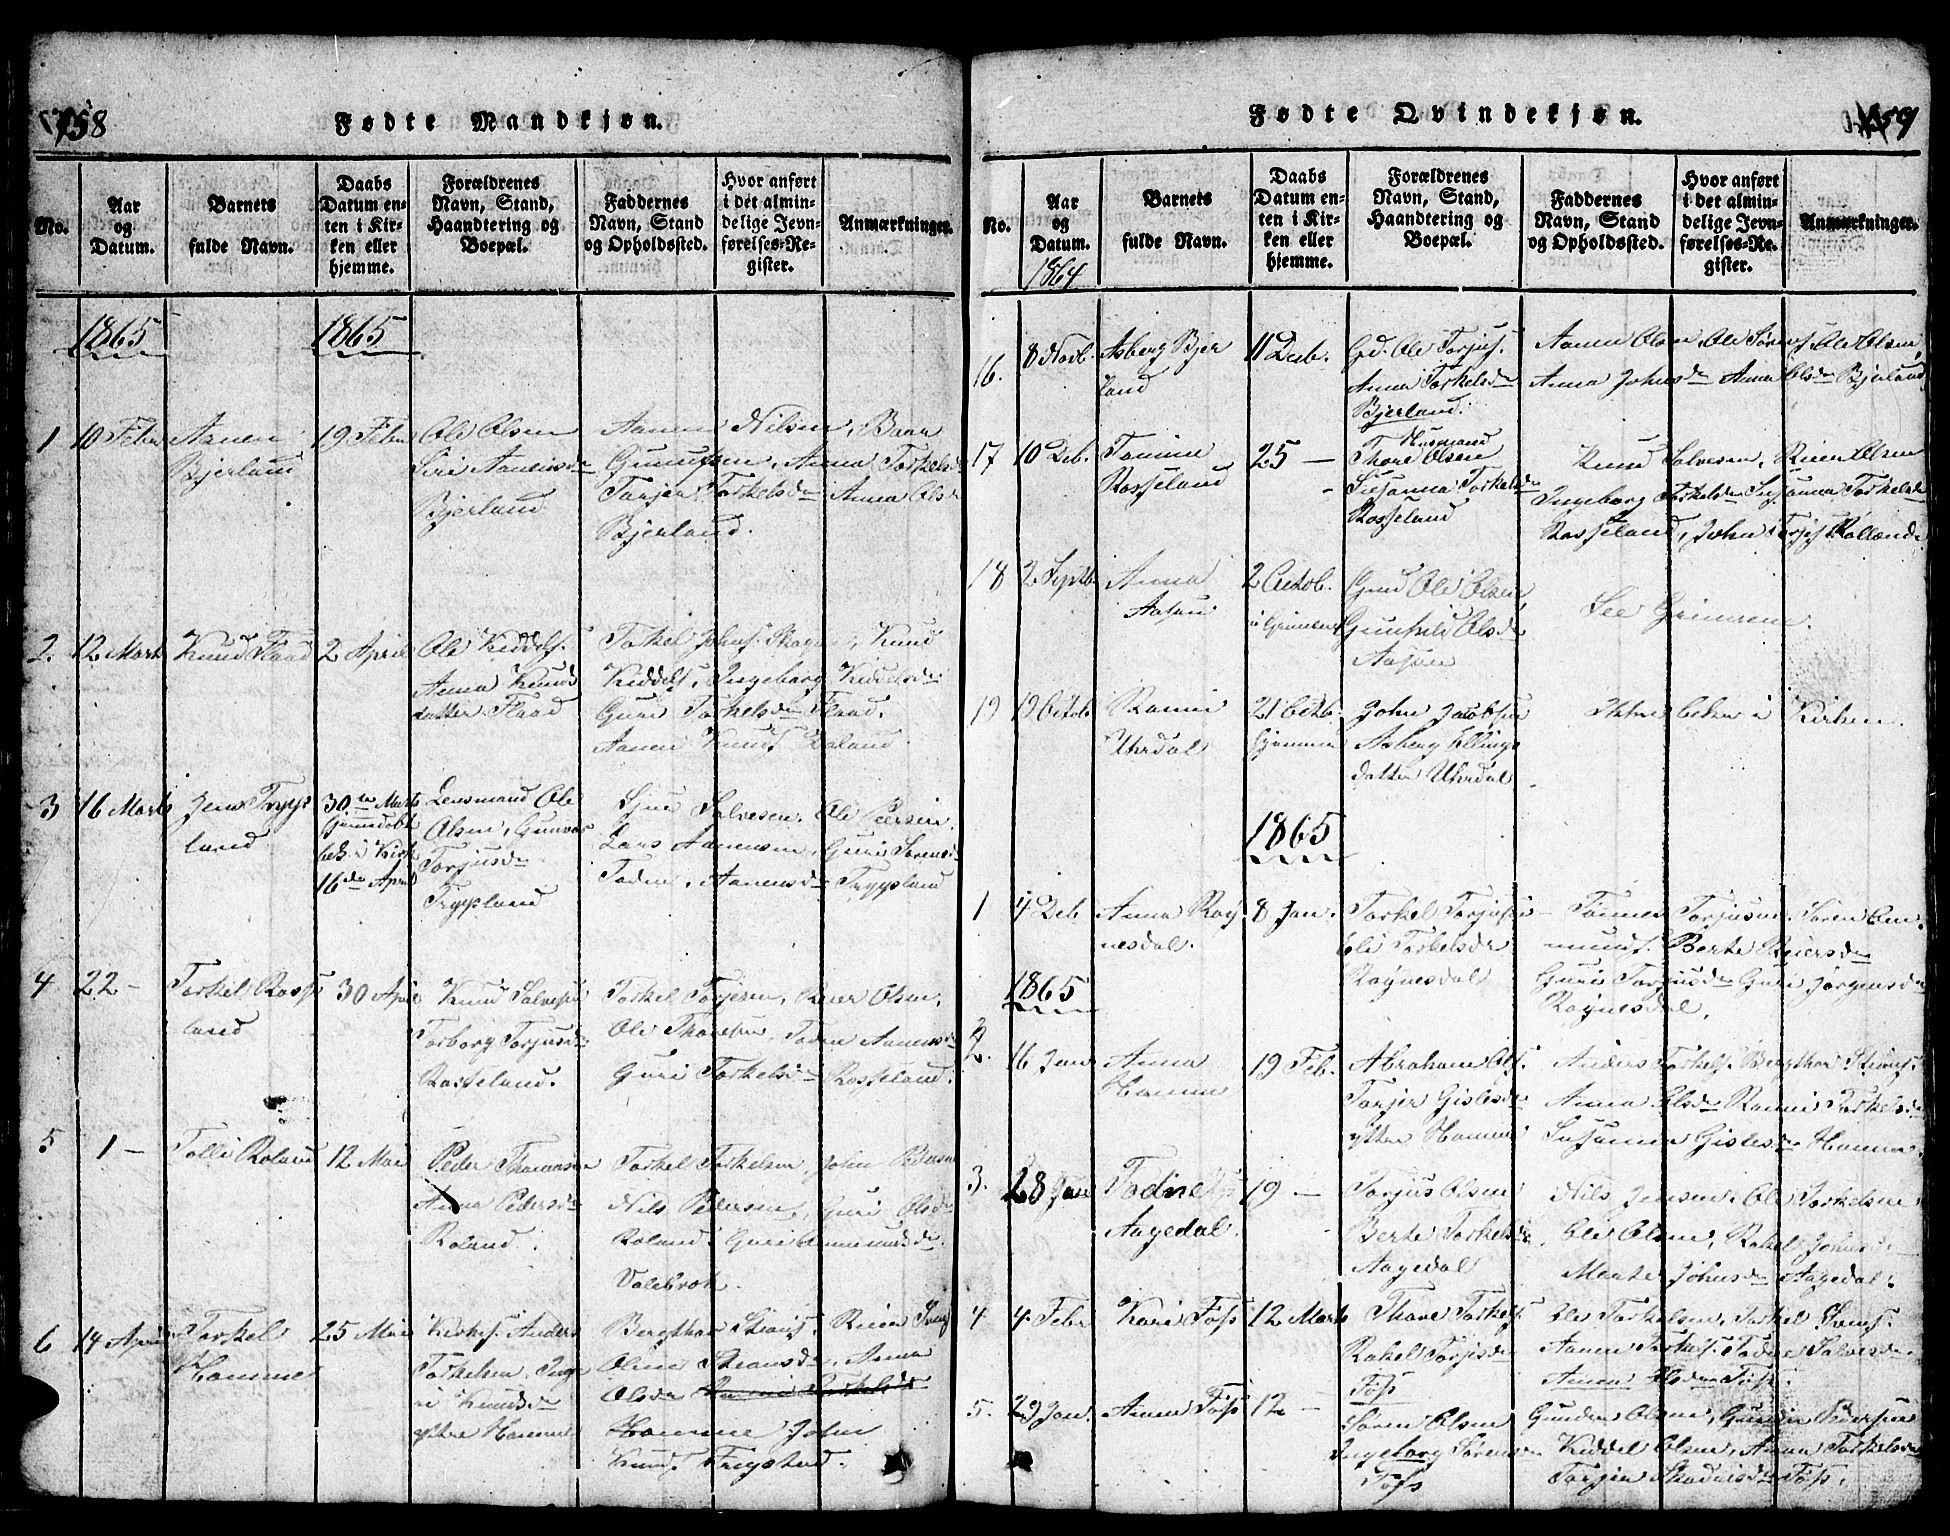 158
Fødte Mandkjøn.
No.
Aar
og
Datum.
Barnets
fulde Navn.
Daabs
Datum en-
ten i Kir-
ken eller
hjemme.
Forældrenes
Navn, Stand,
Haandtering og
Boepæl.
Faddernes
Navn, Stand
og Opholdssted.
Hvor anført
i det almin-
delige Jevn-
førelses-Re-
gister.
Anmærkninger.
1865
1865
1
10 Febr
Aanen
Bjerland
19 Febr
Ole Olsen
Siri Aanensdr
Bjerland
Aanen Nilsen, Baar
Gunufsen, Anna Torkelsd
Torjer Torkelsdr Anna Olsd
Bjerland.
2.
12 Marts
Knud Flaad
2 April
Ole Kiddels.
Anna Knuds
datter Flaad
Torkel Johns. Knud
Kiddels, Ingeborg Kiddelsdr
Guri Torkelsdr Flaad.
Aanen Knuds.
3
16 Marts
Jens Tryps
land
30te Marts
hjemmedøbt
bek. i Kirk
16de April
Lensmand Ole
Olsen, Gunvor
Torjusdr
Trypland
Sjur Salvesen, Ole Peersen
Lars Aanensen, Guri Sørensd
Todne Aanensdr Trypland
4
22 –
Torkel Ross
land
30 April
Knud Salvesen
Torborg Torjusdr
Rosseland.
Torkel Torjesen, Reier Olsen,
Ole Thoresen, Todne Aanensdr
Guri Torkelsdr Rosseland.
5
1 –
Tolli Roland
12 Mai
Peder Thomassen
Anna Pedersdr
Roland.
Torkel Torkelsen, John Pedersen
Nils Pedersen, Guri Olsdr
Roland. Guri
Valebrok.
6
14 April
Torkel
Homme
25 Mai
Kirkes. Anders
Torkelsen, Inge
ri Knudsdr
ytre Homme
Bergthor Stians. Reier
Oline Stiansdr, Anna
Olsdr
Homme John
Knuds Trygstad.
159
Fødte Qvindekjøn.
No.
Aar
og
Datum.
1864
Barnets
fulde Navn.
Daabs
Datum en-
ten i Kir-
ken eller
hjemme.
Forældrenes
Navn, Stand,
Haandtering og
Boepæl.
Faddernes
Navn, Stand
og Opholdssted.
Hvor anført
i det almin-
delige Jevn-
førelses-Re-
gister.
Anmærkninger.
16.
8 Novb.
Asberg Bjer
land
11 Decb.
Gd. Ole Torjus.
Anna Torkelsdr
Bjerland.
Aanen Olsen, Ole Sørens. Ole Olsen,
Anna Johnsdr Anna Olsdr Bjerland
17
10 Deb.
Tomine
Rosseland
25 –
Husmand
Thore Olsen
Susanna Torkelsdr
Rosseland
Knud Salvesen, Reier Olsen
Ingeborg Torkelsdr Susanna Torkelsdr
Rosseland, John Torjs.
18
2 Septb.
Anna
Aasen
2 Octob.
i Grimen
Gmd Ole Olsen,
Gunhild Olsdr
Aasen
See Grimsem.
19
19 Octob
Ranni
Uhrdal
21 Octb.
hjemme
John Jacobsen
Asberg Ellings
datter Uhrdal
Ikke bekr. i Kirken.
1865
1
4 Deb
Anna Røy
nesdal.
8 Jan.
Torkel Torjusen
Eli Torkelsdr
Røynesdal
Tønnes Torjusen, Søren Om-
munds. Berte Reiersdr
Guri Torjusdr Guri Jørgensdr
Røynesdal.
1865
2.
16 Jan
Anna
Homme
19 Feb.
Abraham Ols.
Torjer Gislesdr
ytre Homme
Anders Torkels. Bergthor Stians.
Anna Olsdr Ranni Torkelsdr
Susanna Gislesdr Homme.
3.
28 Jan
Todne
Aagedal.
19 –
Torjus Olsen
Berte Torkelsdr
Aagedal
Nils Jensen, Ole Torkelsen
Eli Olsen, Rakel Johnsd
Merite Johnsdr Aagedal.
4
4 Febr
Kari Foss
12 Marts
Thore Torkels.
Rakel Torjisdr
Foss
Ole Torkelsen, Torkel Svens.
Aanen Torkels. Todne Salvesdr.
Anna Olsdr Foss.
5.
29 Jan.
Anna Foss
12 –
Søren Olsen
Ingeborg Sørensdr
Foss
Gunder Olsen, Gunder Pedersen
Kiddel Olsen, Anna Torkelsdr
Torjer Foss.